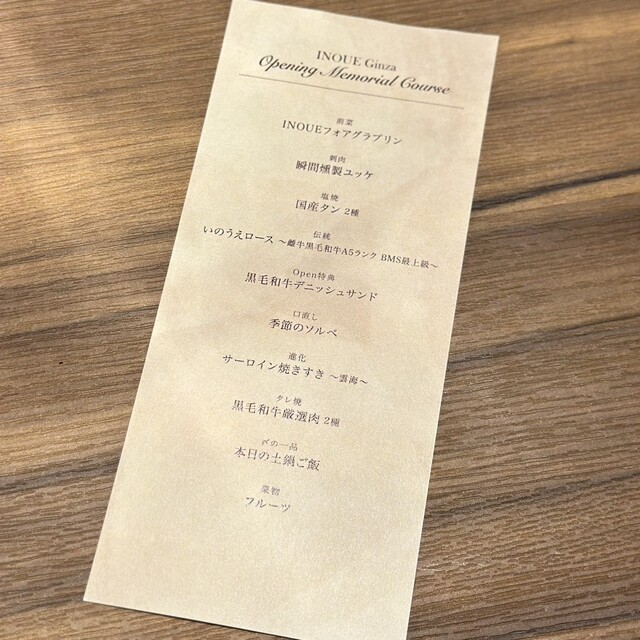 INOUE Ginza
Opening Memorial Course
前菜
INOUEフォアグラプリン
刺肉
瞬間燻製ユッケ
塩焼
国産タン 2種
伝統
いのうえロース ～雌牛黒毛和牛A5ランク BMS最上級～
Open特典
黒毛和牛デニッシュサンド
口直し
季節のソルベ
進化
サーロイン焼きすき ～雲海～
タレ焼
黒毛和牛厳選肉 2種
〆の一品
本日の土鍋ご飯
菓物
フルーツ